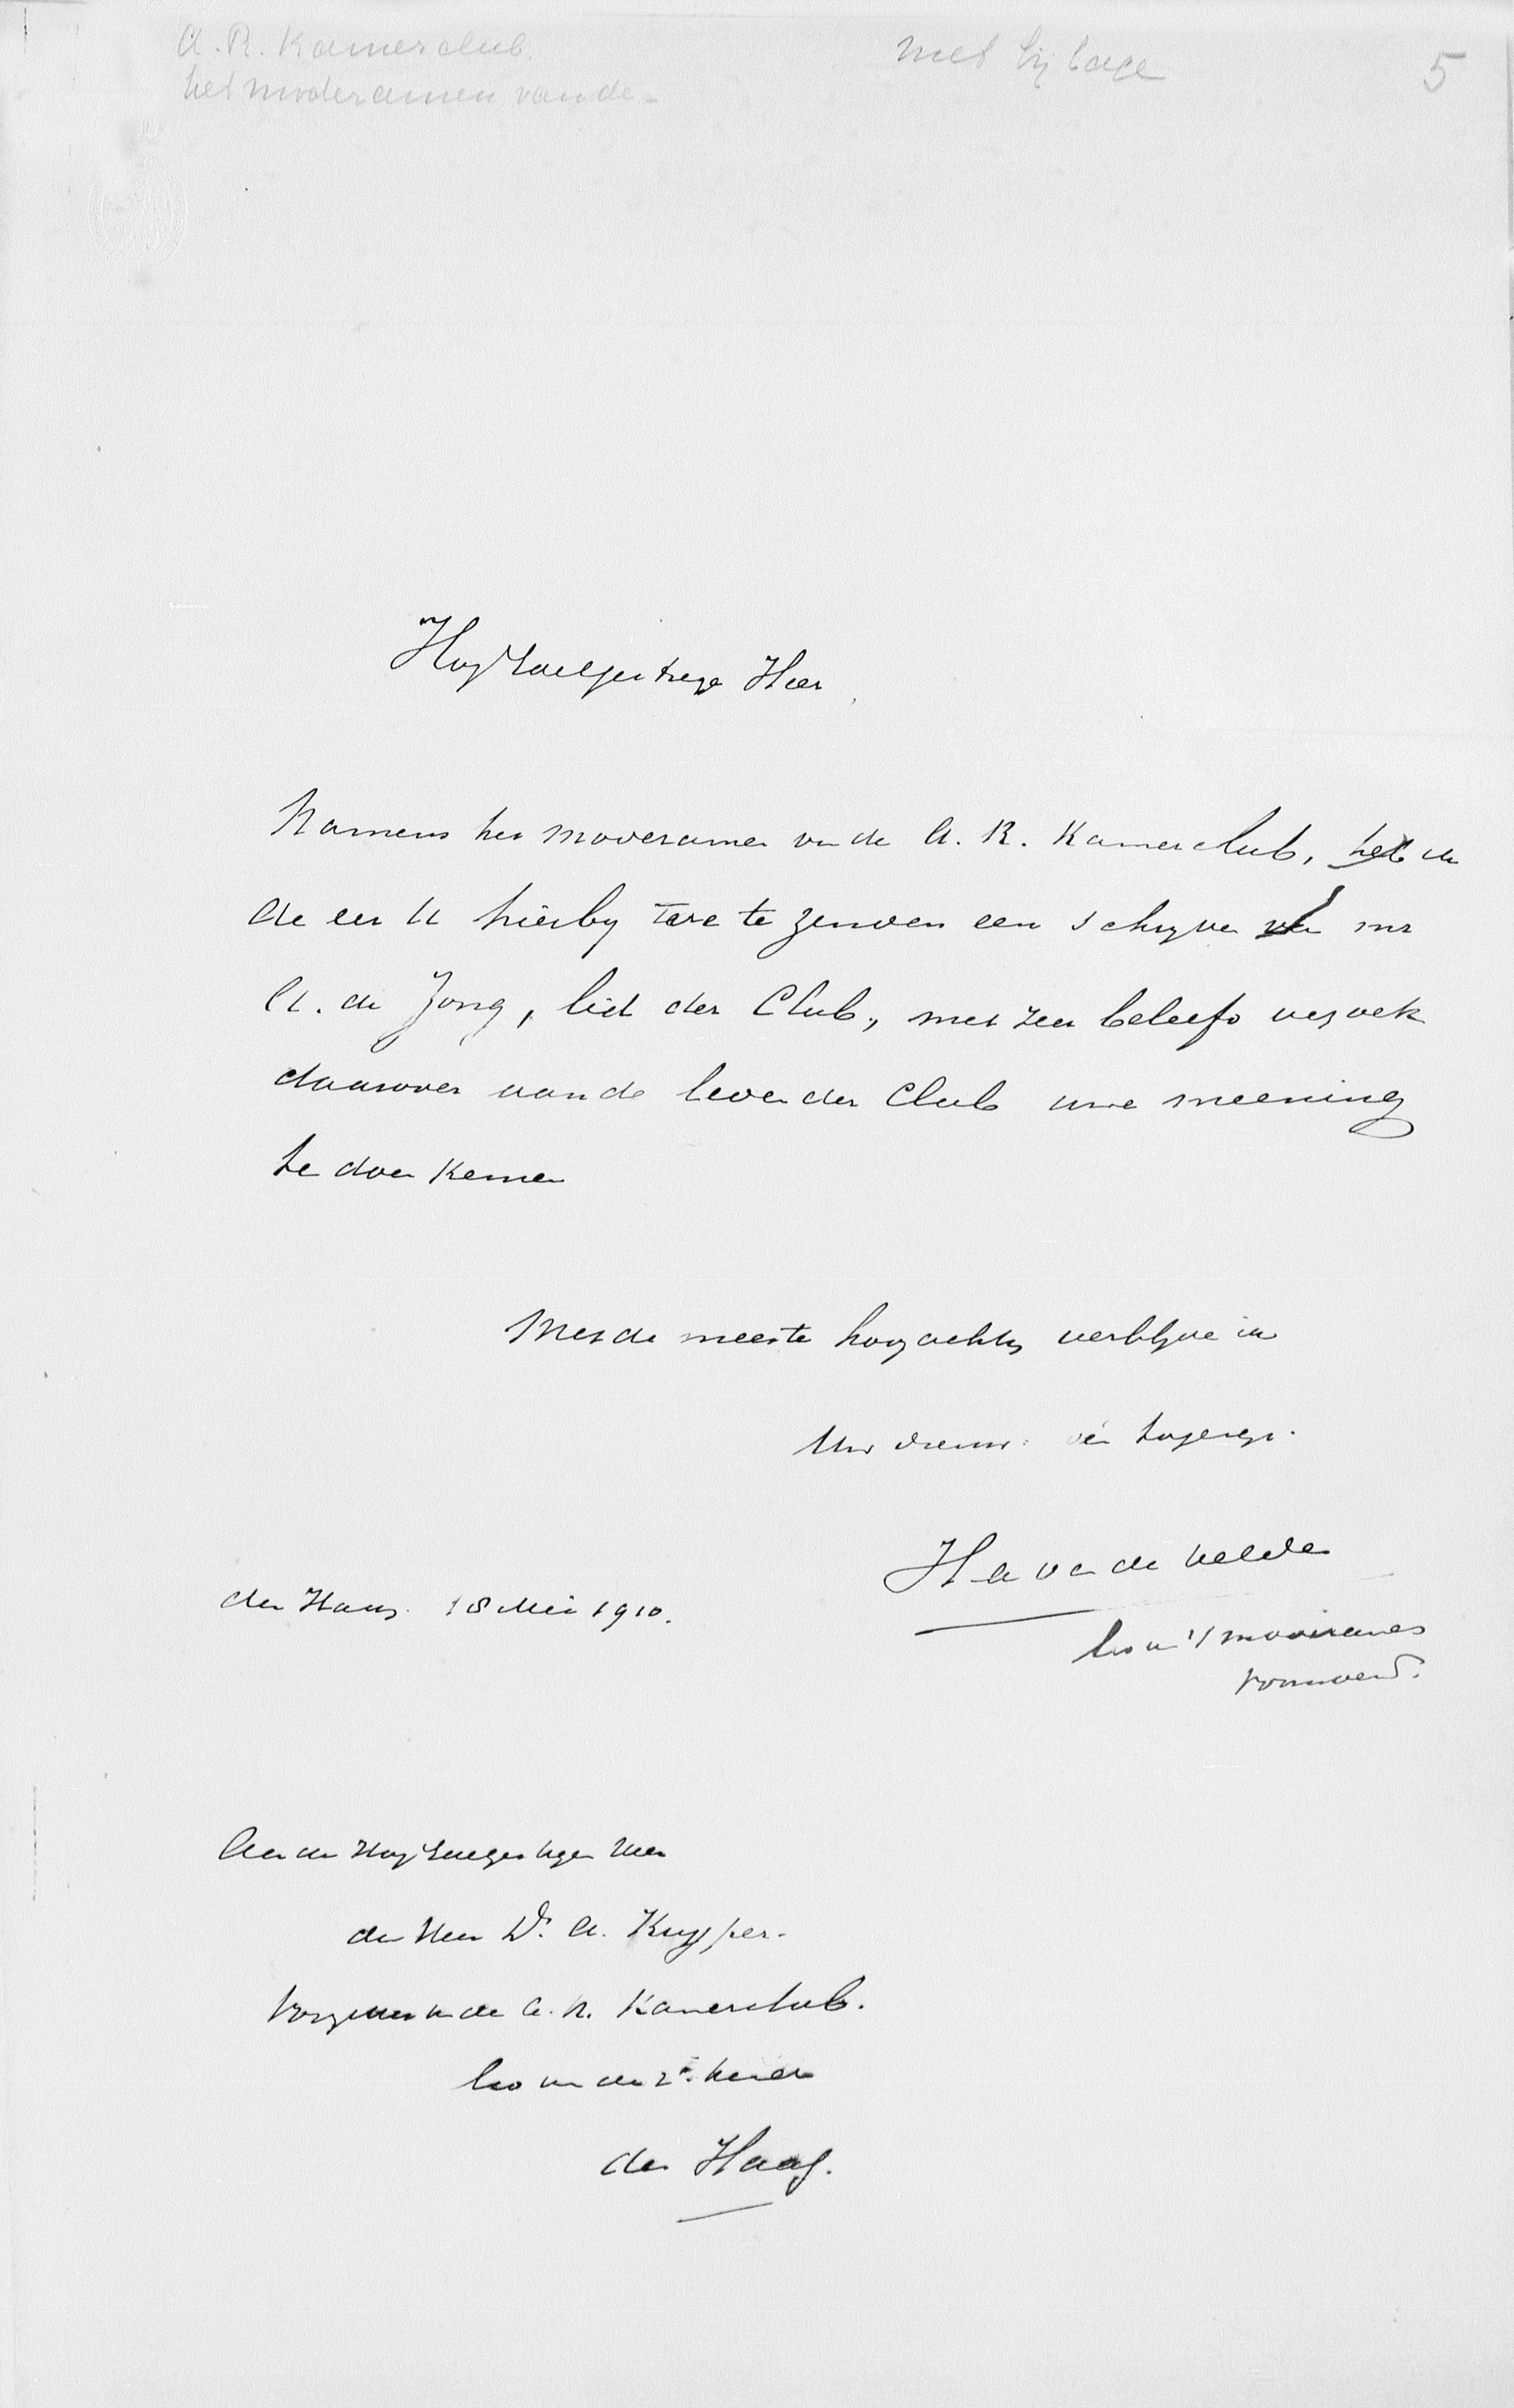 A. R. Kamerclub
het moderamen van de -
met bijlage
5
Hoog Edelgestrenge Heer,
Namens het moderamen van de A. R. Kamerclub, heb ik
de eer U hierbij toe te zenden een schrijven van mr
A. de Jong, lid der Club, met zeer beleefd verzoek
daarover aan de leden der Club uwe meening
te doen kennen
Met de meeste hoogachting verblijve ik
Uw
H a van de Velde
den Haag. 18 Mei 1910.
lid van 't moderamen
Aan den Hoog Edelgestrengen Heer
den Heer Dr. A. Kuyper.
Voorzitter van de A. R. Kamerclub.
lid van de 2e Kamer
den Haag.